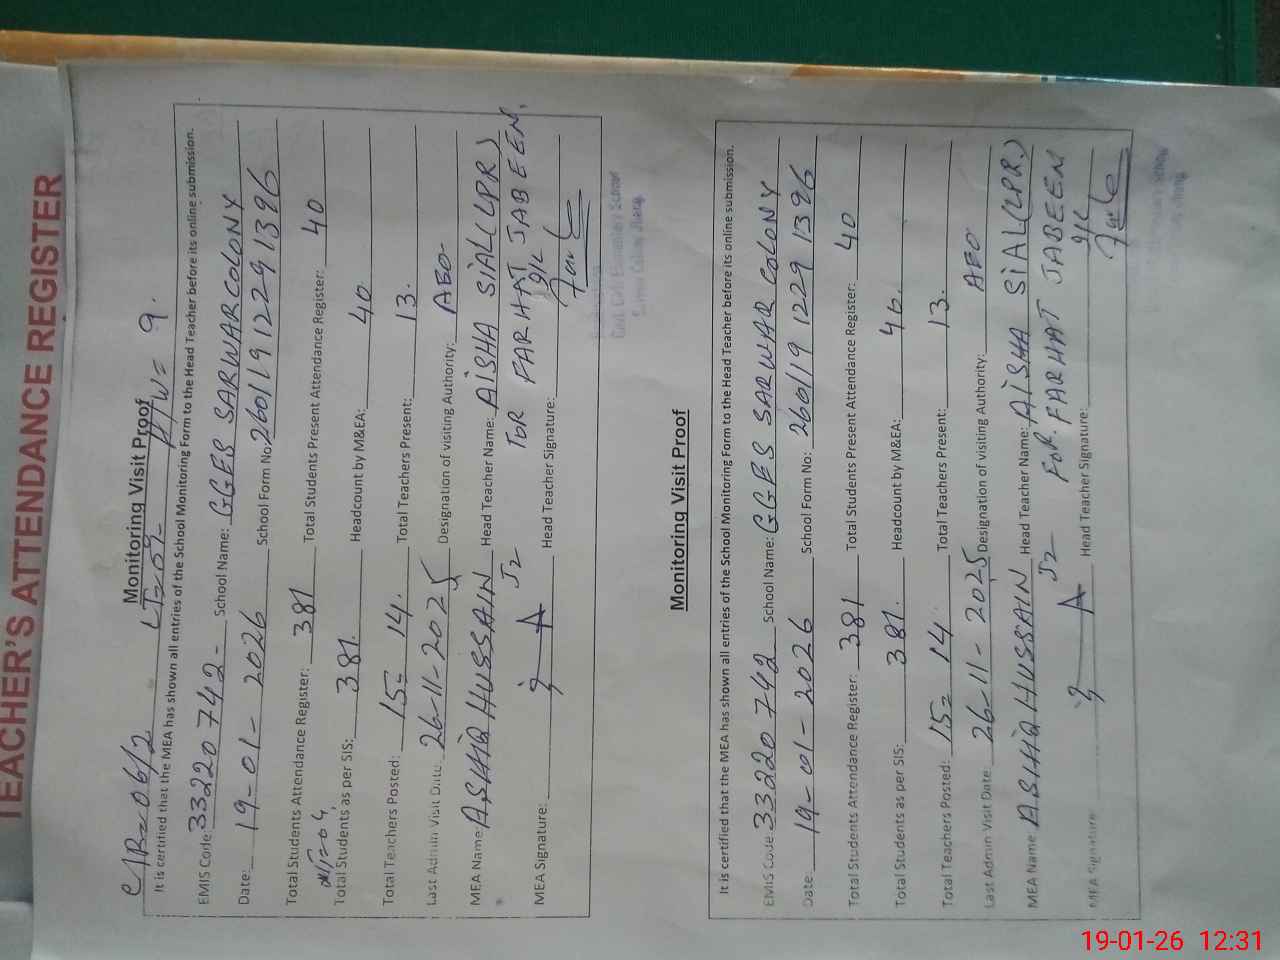 TEACHER'S ATTENDANCE REGISTER
Monitoring Visit Proof
It is certified that the MEA has shown all entries of the School Monitoring Form to the Head Teacher before its online submission.
EMIS Code: 33220742- School Name: GGES SARWAR COLONY
Date: 19-01-2026 School Form No: 260119 1229 1396
Total Students Attendance Register: 381 Total Students Present Attendance Register: 40
Total Students as per SIS: 381. Headcount by M&EA: 40
Total Teachers Posted: 15= 14. Total Teachers Present: 13.
Last Admin Visit Date: 26-11-2025 Designation of visiting Authority: AEO-
MEA Name: ASHIQ HUSSAIN Head Teacher Name: AISHA SIAL (LPR)
FOR FARHAT JABEEN.
MEA Signature: Head Teacher Signature:
Monitoring Visit Proof
It is certified that the MEA has shown all entries of the School Monitoring Form to the Head Teacher before its online submission.
EMIS Code: 33220742 School Name: GGES SARWAR COLONY
Date: 19-01-2026 School Form No: 260119 1229 1396
Total Students Attendance Register: 381 Total Students Present Attendance Register: 40
Total Students as per SIS: 381. Headcount by M&EA: 40.
Total Teachers Posted: 15= 14. Total Teachers Present: 13.
Last Admin Visit Date: 26-11-2025 Designation of visiting Authority: AEO
MEA Name ASHIQ HUSSAIN Head Teacher Name: AISHA SIAL (LPR.)
FOR. FARHAT JABEEN
MEA Signature: Head Teacher Signature:
19-01-26 12:31